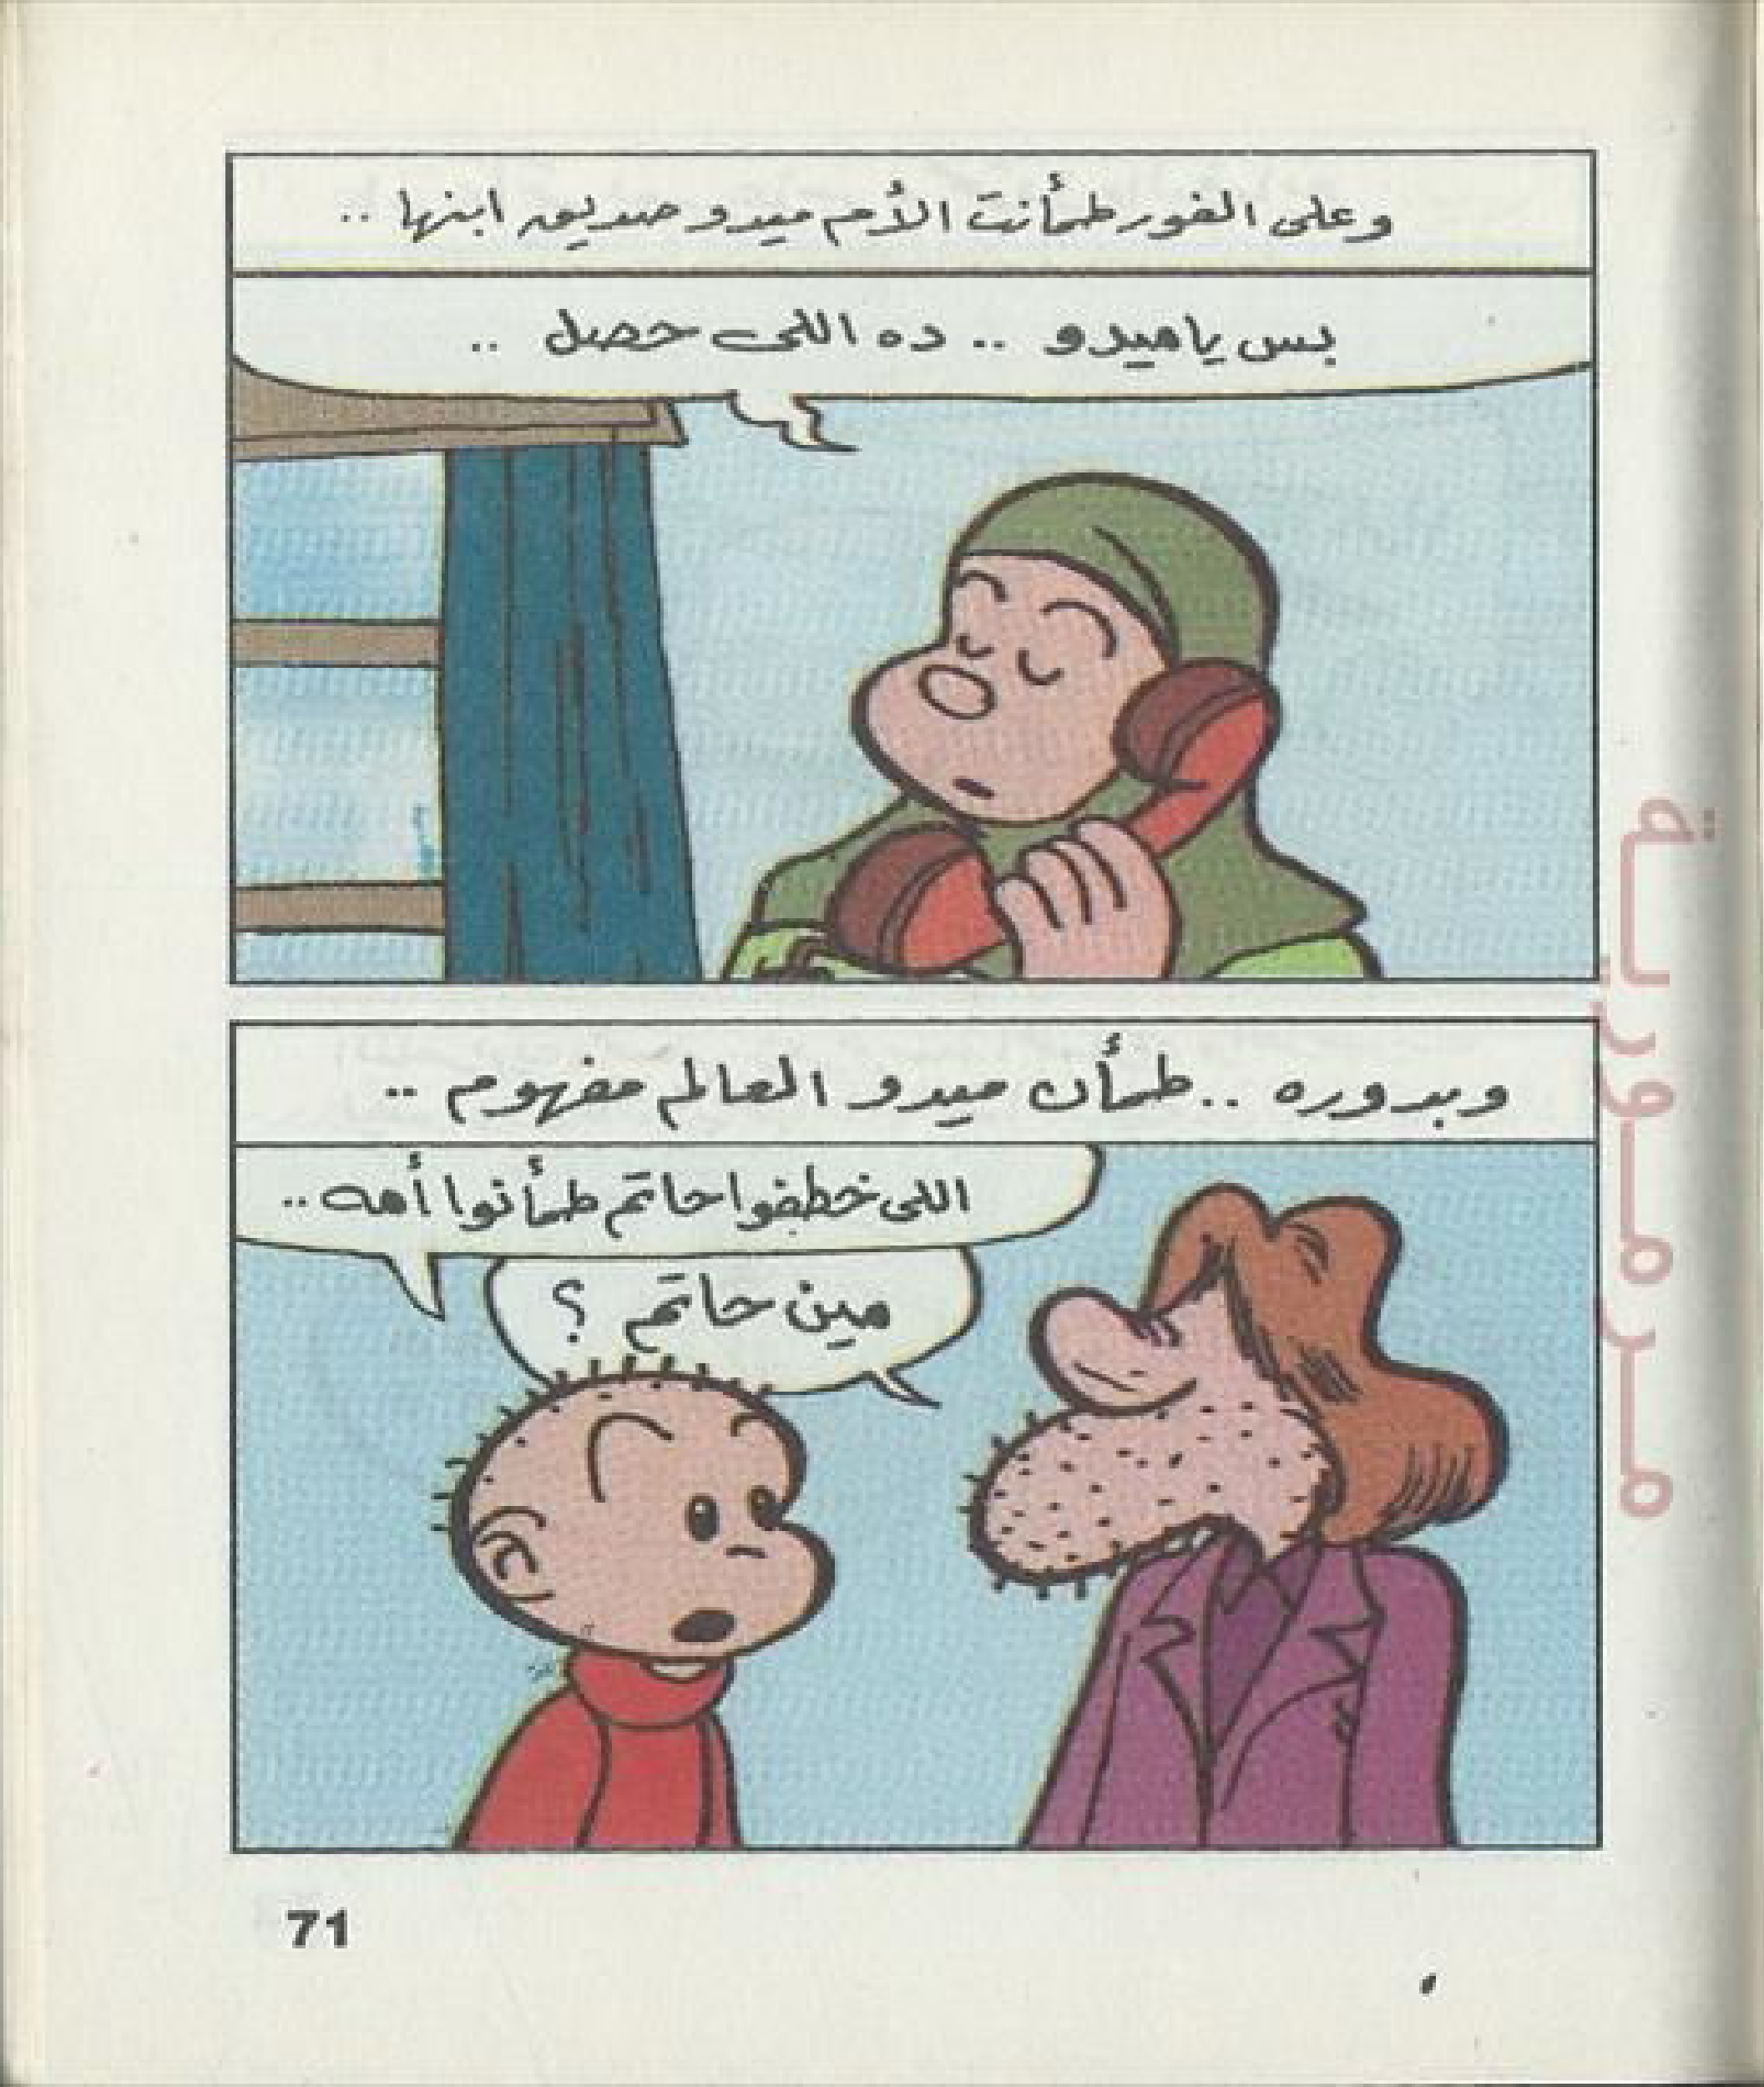 وعلى الفور طمأنت الأم ميدو صديق ابنها ..
بس ياميدو .. ده اللى حصل ..
وبدوره .. طمأن ميدو العالم مفهوم ..
اللى خطفوا حاتم طمأنوا أمه ..
مين حاتم ؟
مرمورية
71